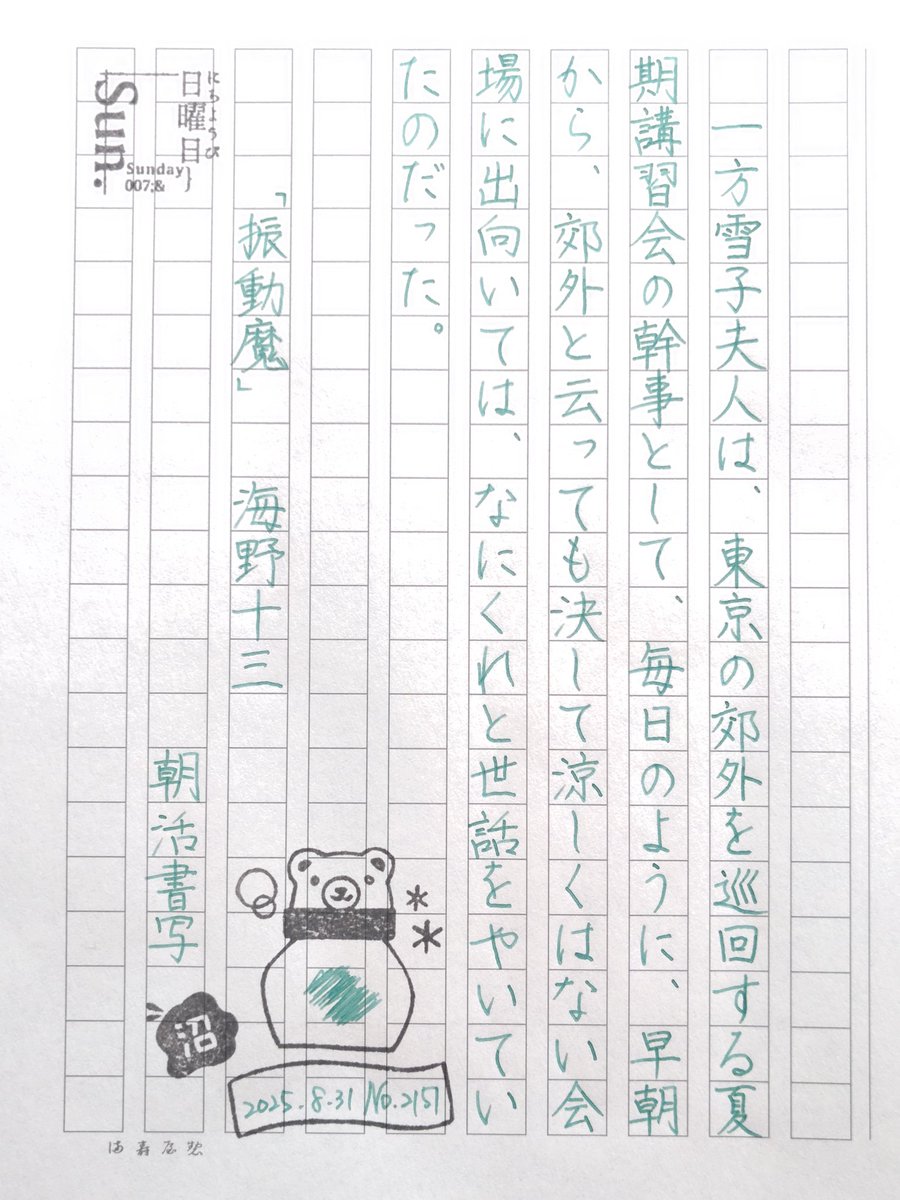 一方雪子夫人は、東京の郊外を巡回する夏
期講習会の幹事として、毎日のように、早朝
から、郊外と云っても決して涼しくはない会
場に出向いては、なにくれと世話をやいてい
たのだった。
「振動魔」 海野十三
朝活書写
にちようび
日曜日
Sun.
Sunday
007;&}
沼
2025.8.31 No.2151